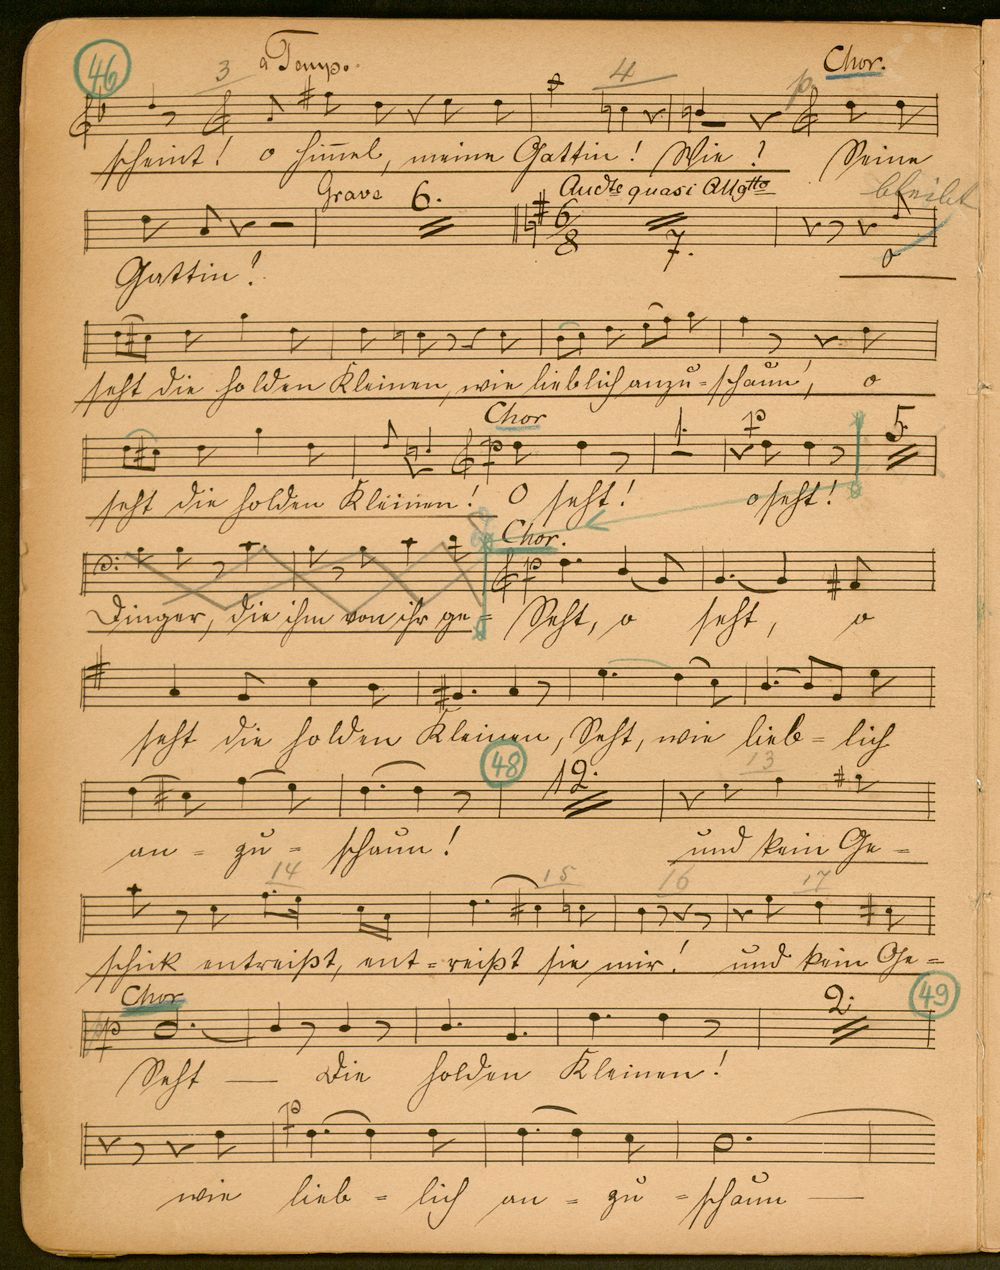 46 3 a Tempo. 4 Chor.
p
scheint! o himmel, meine Gattin! Wie? Seine
Grave 6. Andte quasi Allgtto bleibt
6/8 7.
Gattin! o
seht die holden Kleinen, wie lieblich anzu=schaun, o
Chor
p 1. p 5.
seht die holden Kleinen! O seht! o seht!
Chor.
p
Dinger, die ihm von ihr ge= Seht, o seht, o
seht die holden Kleinen, Seht, wie lieb=lich
48 12. 13
an=zu=schaun! und kein Ge=
14 15 16 17
schick entreißt, ent=reißt sie mir! und kein Ge=
Chor 2. 49
pp
Seht — Die holden Kleinen!
p
wie lieb=lich an=zu=schaun —